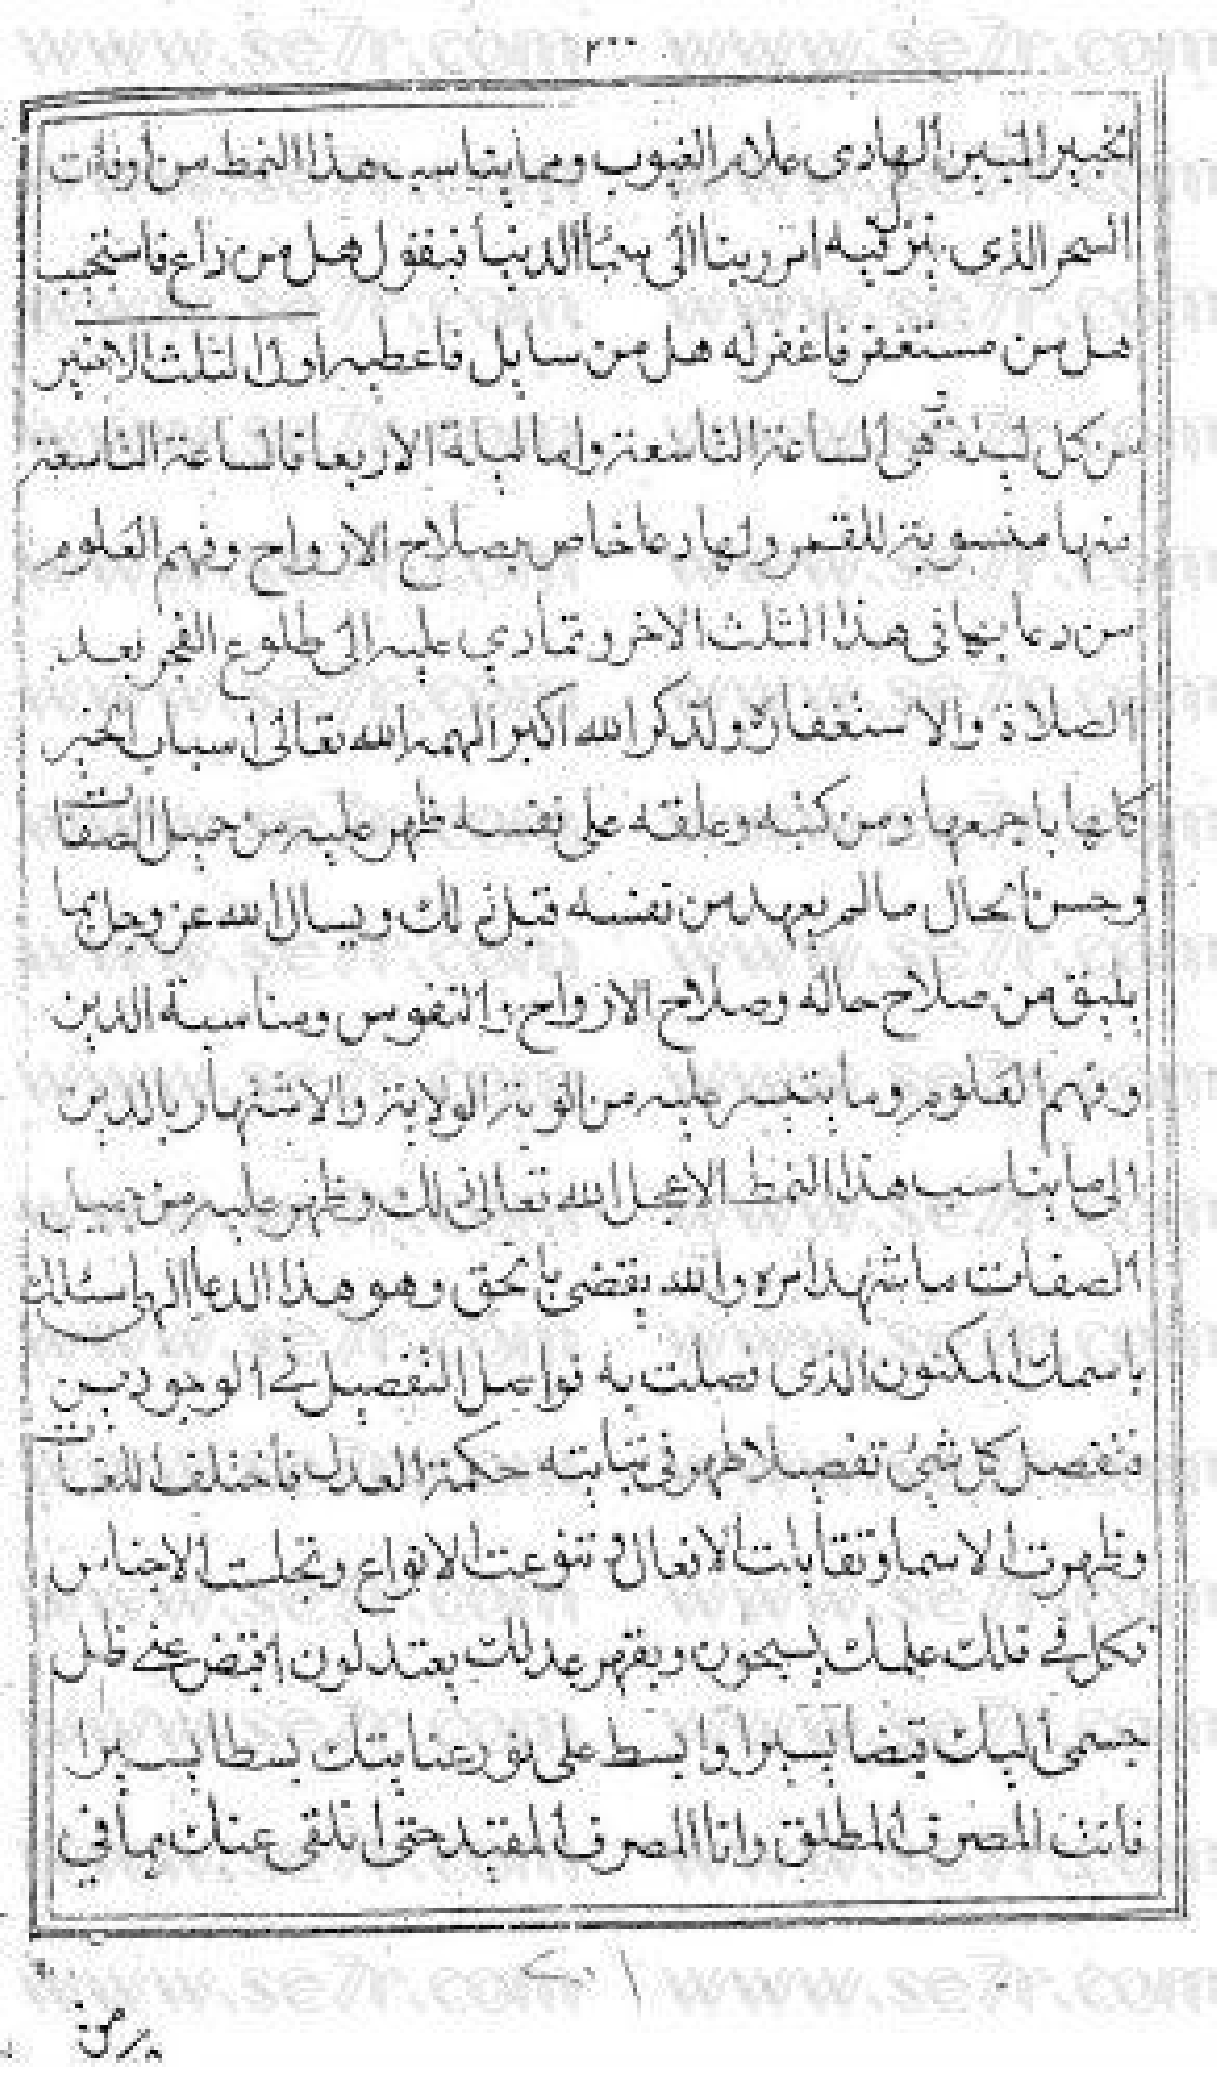 ٢٠٠
الخبير المبين الهادى علام الغيوب ومما يناسب هذا النمط من أوقات
السحر الذى ينزل فيه امر ربنا الى سماء الدنيا فيقول هل من داع فاستجيب
هل من مستغفر فاغفر له هل من سايل فاعطيه اول الثلث الاخير
من كل ليلة هى الساعة التاسعة واما ليلة الاربعا فالساعة التاسعة
منها منسوبة للقمر ولها دعا خاص بصلاح الارواح وفهم العلوم
من دعا بها فى هذا الثلث الاخر وتمادى عليه الى طلوع الفجر بعد
الصلاة والاستغفار ولذكر الله اكبر الهمه الله تعالى اسباب الخير
كلها باجمعها ومن كتبه وعلقه على نفسه ظهر عليه من جميل الصفات
وحسن الحال ما لم يعهد من نفسه قبل ذلك ويسال الله عز وجل بما
يليق من صلاح حاله وصلاح الارواح والنفوس ومناسبة الدين
وفهم العلوم وما يتيسر عليه من الولاية والاشتهار بالدين
الى ما يناسب هذا النمط الا عجل الله تعالى ذلك وظهر عليه من جميل
الصفات ما شهد امره والله يقضى بالحق وهو هذا الدعا الهى اسئلك
باسمك المكنون الذى فصلت به فواصل التفصيل فى الوجودين
ففصل كل شئ تفصيلا ظهر فى حكمة العدل فاختلف اللغات
وظهرت الاسما وتقابلت الافعال و تنوعت الانواع وتجلت الاجناس
فكل فى فلك علمك يسبحون وبقهر عدلك يعتدلون اقبض عنى ظل
جسمى اليك قبضا يسيرا وابسط على نور عنايتك بسطا يسيرا
فانت المصرف المطلق وانا المصرف المقيد حتى اتلقى عنك بما فى
www.se7r.com